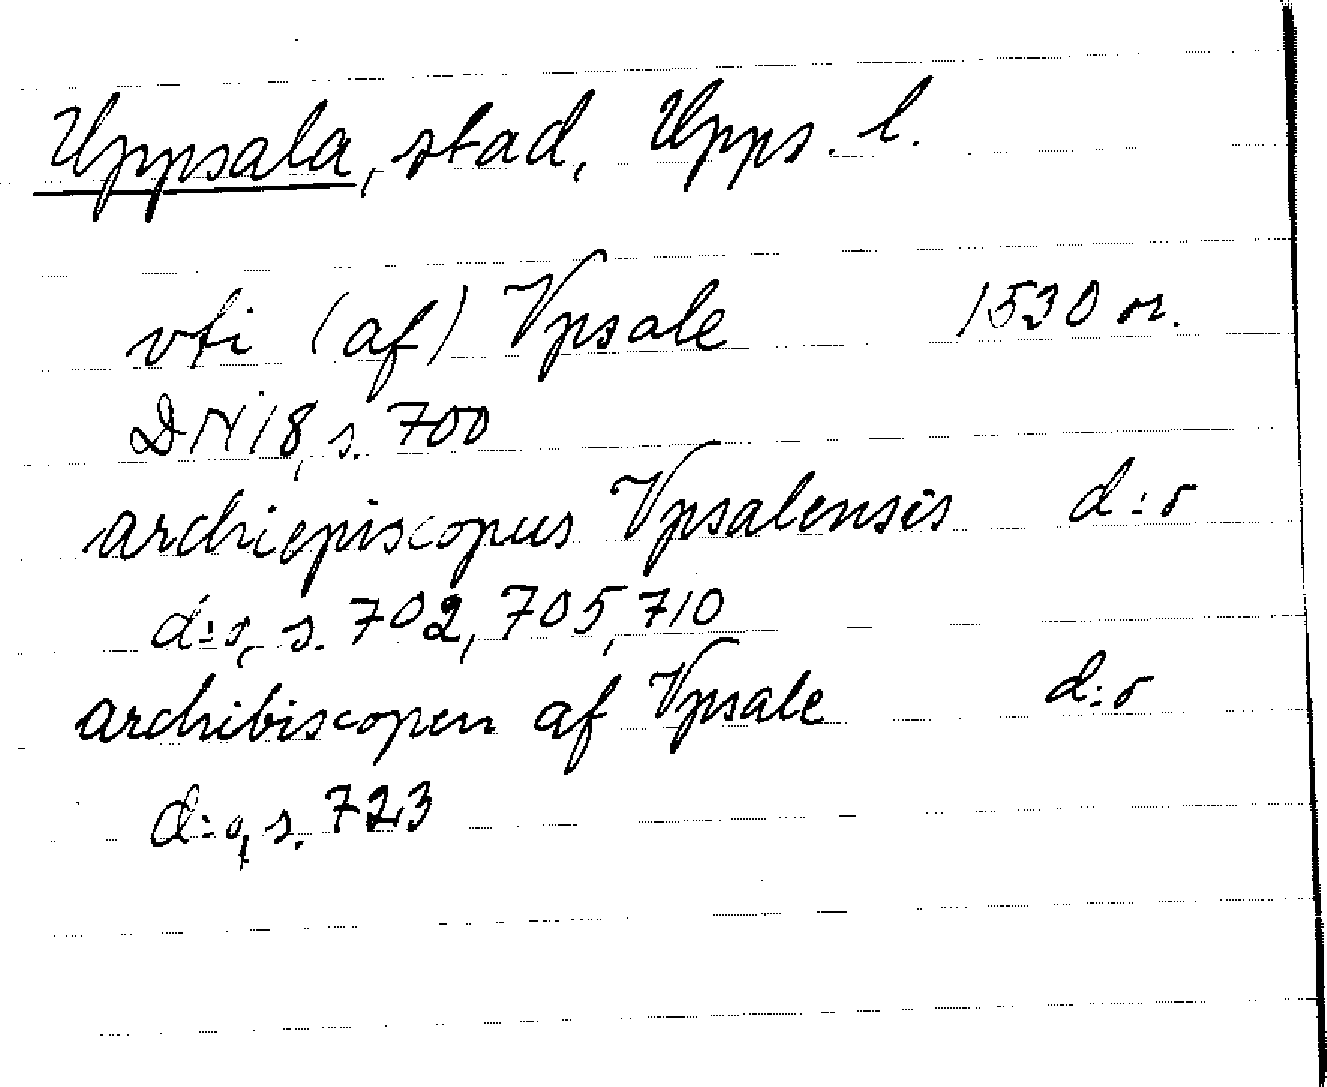 Uppsala, stad, Upps. l.
vti (af) Vpsale 1530 or.
DN 18, s. 700
archiepiscopus Vpsalensis d:o
d:o, s. 702, 705, 710
archibiscopen af Vpsale d:o
d:o, s. 723